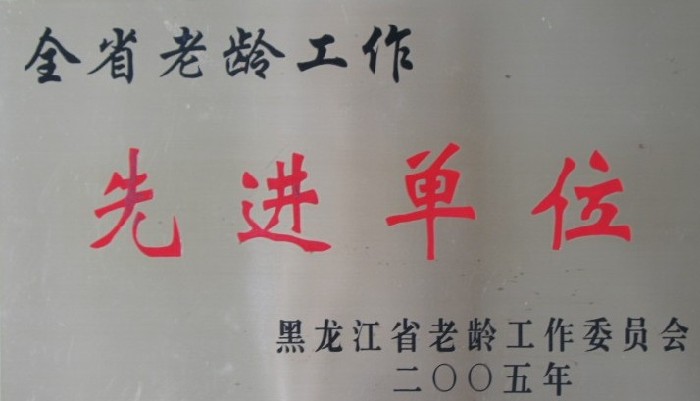 全省老龄工作
先进单位
黑龙江省老龄工作委员会
二〇〇五年